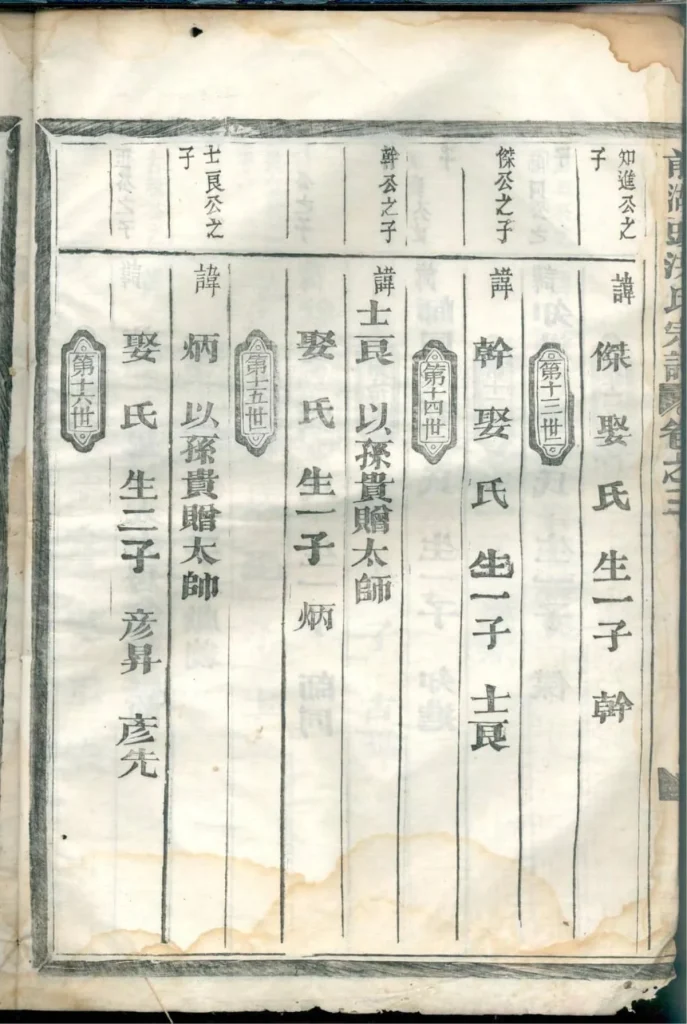 前湖頭洪氏宗譜 卷之三
知進公之子
諱 傑 娶 氏 生一子 幹
第十三世
傑公之子
諱 幹 娶 氏 生一子 士良
第十四世
幹公之子
諱 士良 以孫貴贈太師
娶 氏 生一子 炳
第十五世
士良公之子
諱 炳 以孫貴贈太師
娶 氏 生二子 彦昇 彦先
第十六世